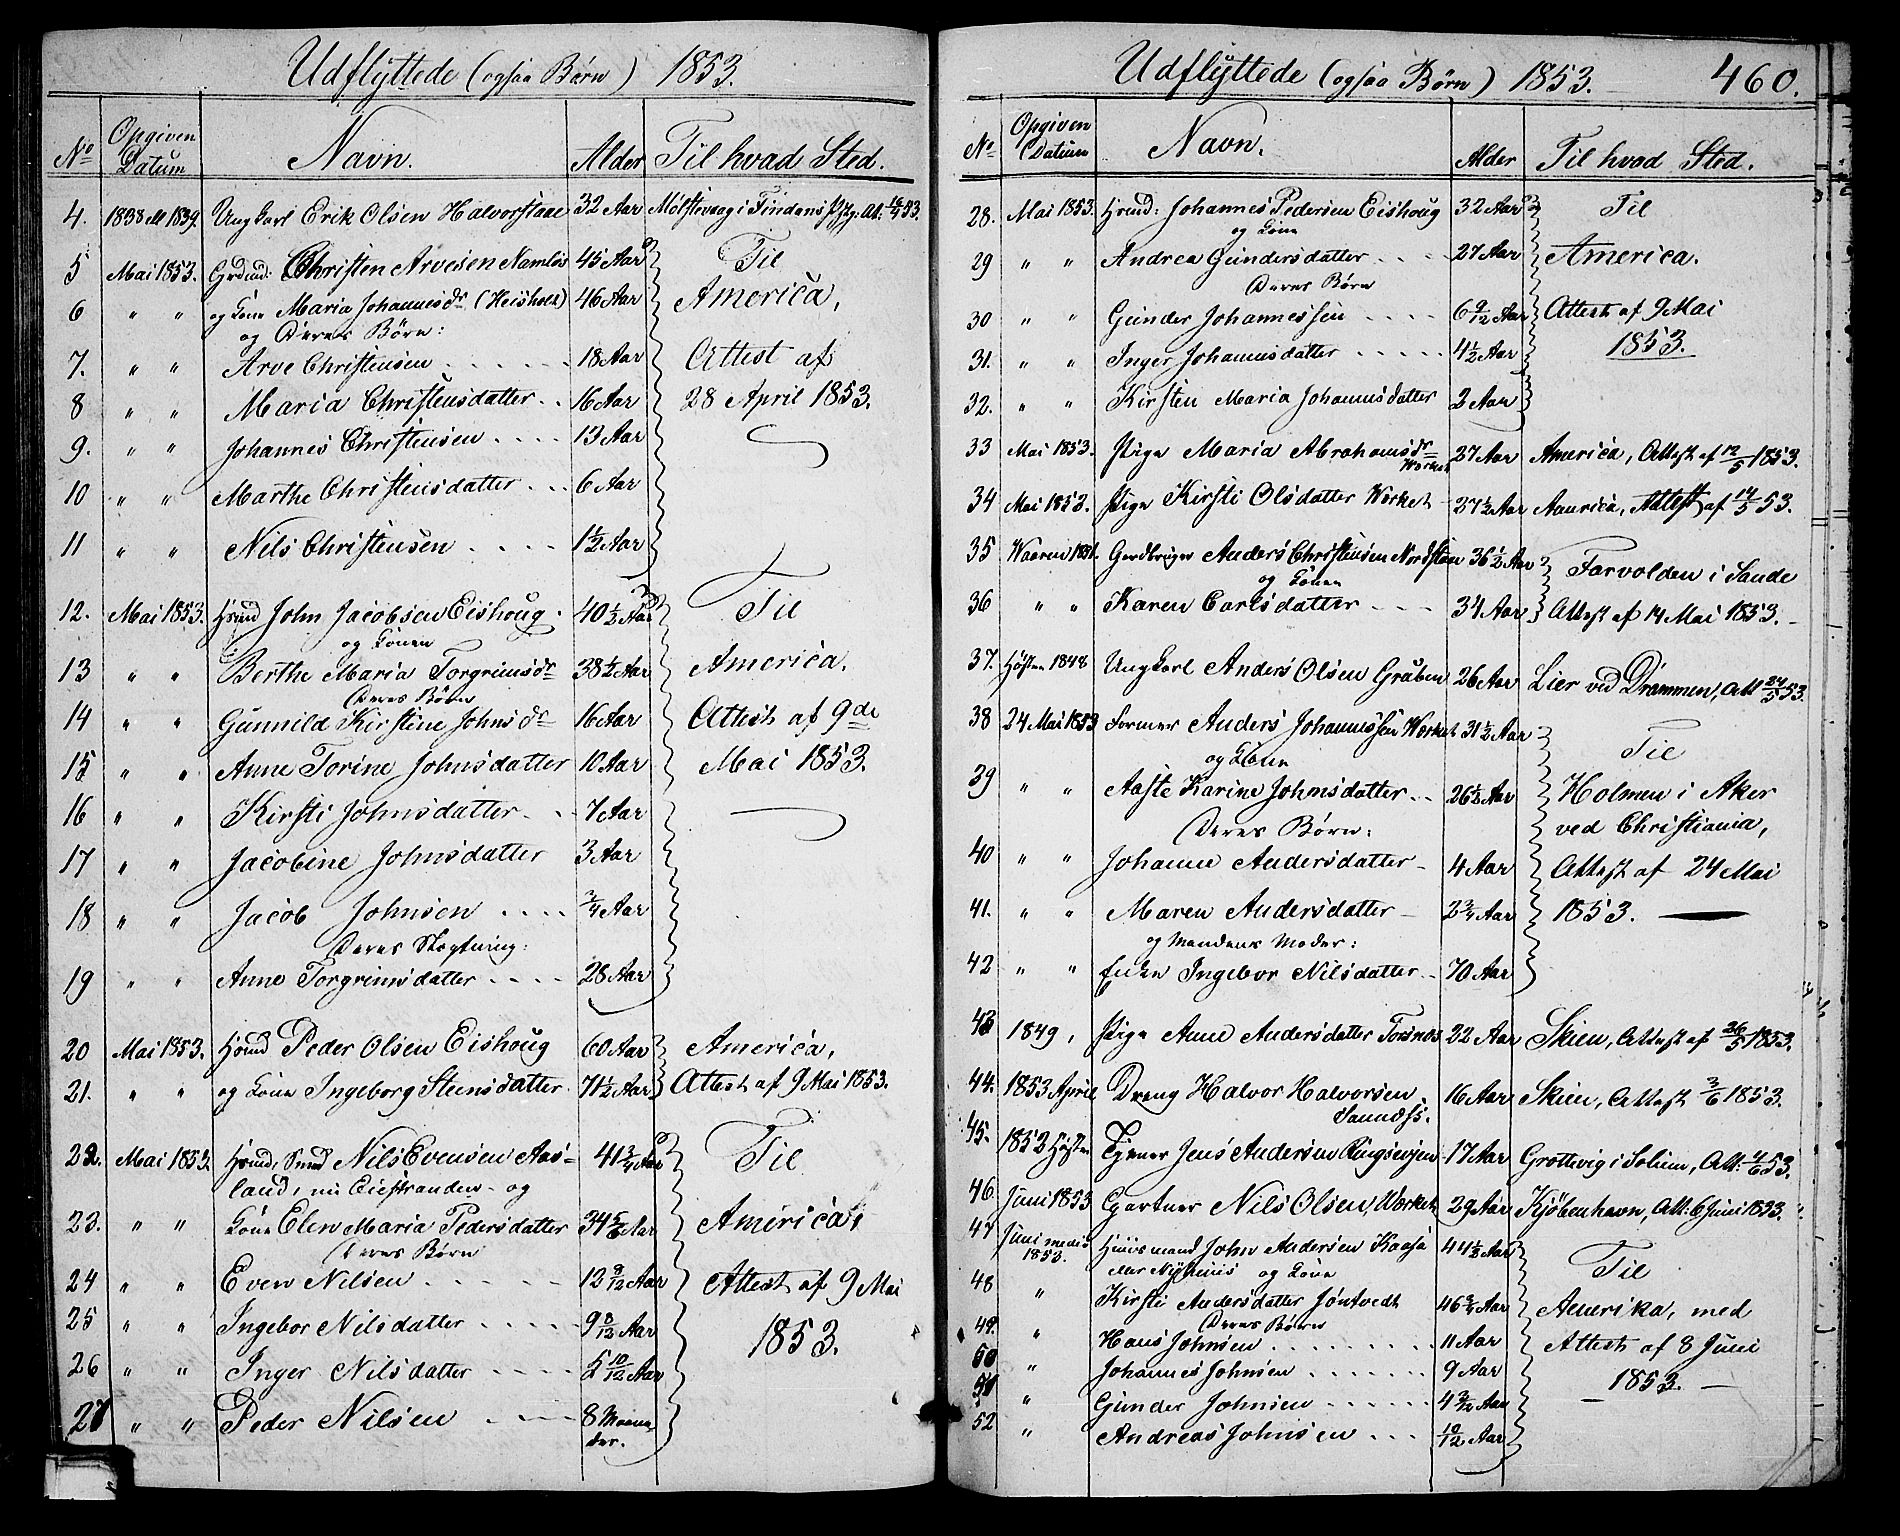 Udflyttede (ogsaa Børn) 1853.
No Opgiven Datum Navn. Alder Til hvad Sted.
4. 1838 ell 1839. Ung Karl Erik Olsen Halvorstaae 32 Aar
5 Mai 1853. Christen Arvesen Namløs 45 Aar Til
6 " " og Kone Maria Johannesdr. (Heisholt) 46 Aar America,
og Deres Børn:
7. " " Arve Christensen 18 Aar Attest af
8 " " Maria Christensdatter 16 Aar 28 April 1853.
9. " " Johannes Christensen 13 Aar
10 " " Marthe Christensdatter 6 Aar
11 " " Nils Christensen 1 1/2 Aar
12. Mai 1853. Hsmd John Jacobsen Eishoug 40 1/2 Aar Til
og Konen
13 " " Berthe Maria Torgrimsdr 38 1/2 Aar America.
Deres Børn
14 " " Gunnild Kirstine Johnsdr 16 Aar Attest af 9de
15 " " Anne Torine Johnsdatter 10 Aar Mai 1853.
16 " " Kirsti Johnsdatter 7 Aar
17 " " Jacobine Johnsdatter 3 Aar
18 " " Jacob Johnsen 3/4 Aar
Deres Slægtning:
19 " " Anne Torgrimsdatter 28 Aar
20 Mai 1853. Hsmd Peder Olsen Eishoug 60 Aar America,
21. " " og Kone Ingeborg Steensdatter 71 1/2 Aar Attest af 9 Mai 1853.
22. Mai 1853. Hsmd, Smed Nils Evensen Aas- 41 3/4 Aar Til
land, nu Eiestranden og
23. " " Kone Elen Maria Pedersdatter 34 5/6 Aar America,
Deres Børn
24 " " Even Nilsen 12 8/12 Aar Attest af 9 Mai
25 " " Ingebor Nilsdatter 9 8/12 Aar 1853.
26 " " Inger Nilsdatter 5 10/12 Aar
27 " " Peder Nilsen 8 Maane-
der.
Udflyttede (ogsaa Børn) 1853. 460.
No Opgiven Datum Navn. Alder Til hvad Sted.
28. Mai 1853. Hsmd: Johannes Pedersen Eishoug 32 Aar Til
og Kone
29 " " Andrea Gundersdatter 27 Aar America.
Deres Børn
30 " " Gunder Johannessen 6 9/12 Aar Attest af 9 Mai
31. " " Inger Johannesdatter 4 1/2 Aar 1853.
32. " " Kirsten Maria Johannesdatter 2 Aar
33 Mai 1853. Pige Maria Abrahamsdr 27 Aar America, Attest af 12/5 1853.
Værket
34 Mai 1853. Pige Kirsti Olsdatter Værket 27 1/2 Aar America, Attest af 14/5 53.
35 Vaaren 1851. Gardbruger Anders Christensen Nordstøen 36 1/2 Aar Farvolden i Sande
og Konen
36 " " Karen Carlsdatter 34 Aar Attest af 14 Mai 1853.
37. Høsten 1848 Ung Karl Anders Olsen Gruben 26 Aar Lier ved Drammen, Att 24/5 53.
38 24 Mai 1853 Former Anders Johannessen Værket 31 1/2 Aar Til
og Kone
39 " " Aaste Karine Johnsdatter 26 1/2 Aar Holmen i Aker
Deres Børn: ved Christiania,
40 " " Johanne Andersdatter 4 Aar Attest af 24 Mai
41. " " Maren Andersdatter 2 3/4 Aar 1853.
og Mandens Moder:
42 " " Enke Ingebor Nilsdatter 70 Aar
43 1849, Pige Anne Andersdatter Torsnes 22 Aar Skien, Attest af 26/5 1853.
44. 1853 April Dreng Halvor Halvorsen 16 Aar Skien, Attest 3/6 1853.
45. 1852 Høsten Tjener Jens Andersen 17 Aar Grottvig i Solum, Att: 4/6 53.
46. Juni 1853 Gartner Nils Olsen, Værket 29 Aar Kjøbenhavn, Att: 6 Juni 1853.
47 Juni medio 1853. Huusmand John Andersen Kaasa 44 1/2 Aar Til
eller Nyhuus og Kone
48 " Kirsti Andersdatter Jøntvedt 46 3/4 Aar Amerika, med
Deres Børn
49. " Hans Johnsen 11 Aar Attest af 8 Juni
50 " Johannes Johnsen 9 Aar 1853.
51 " Gunder Johnsen 4 3/12 Aar
52 " Andreas Johnsen 10/12 Aar